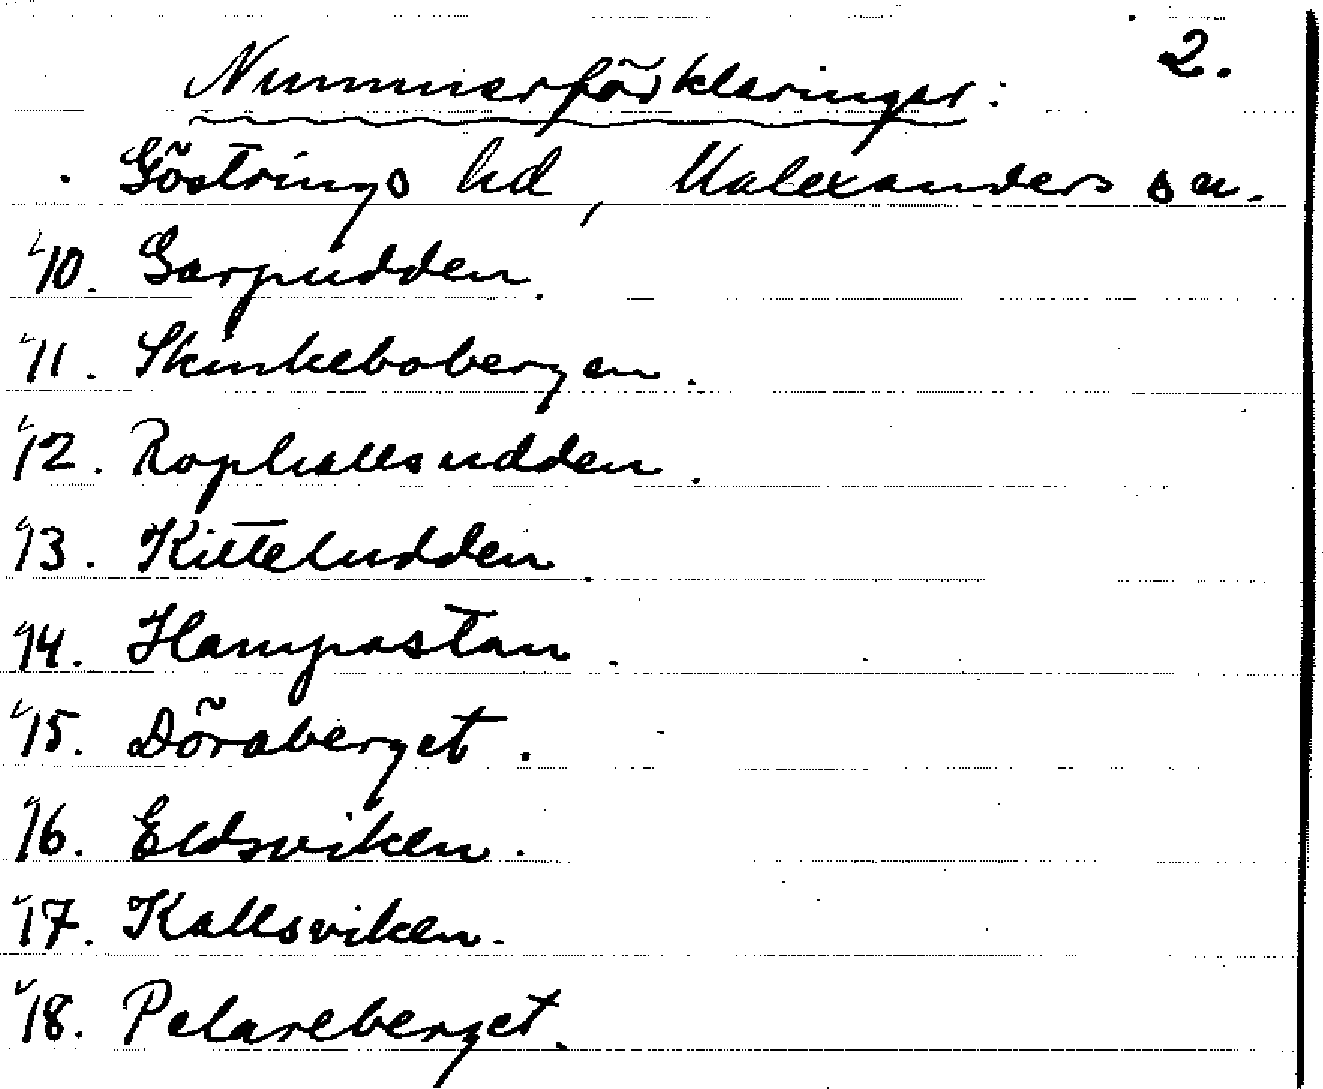 2.
Nummerförklaringar:
Göstrings hd, Malexanders sn.
10. Garpudden.
11. Skinkebobergen.
12. Rophallsudden.
13. Kitteludden.
14. Hampastan.
15. Döraberget.
16. Eldsviken.
17. Kallsviken.
18. Pelareberget.